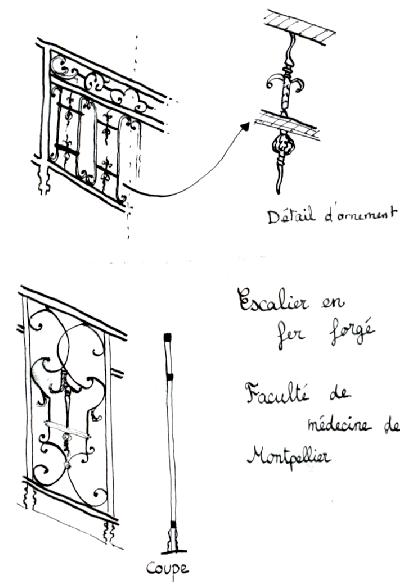 Détail d'ornement
Escalier en
fer forgé
Faculté de
médecine de
Montpellier
Coupe